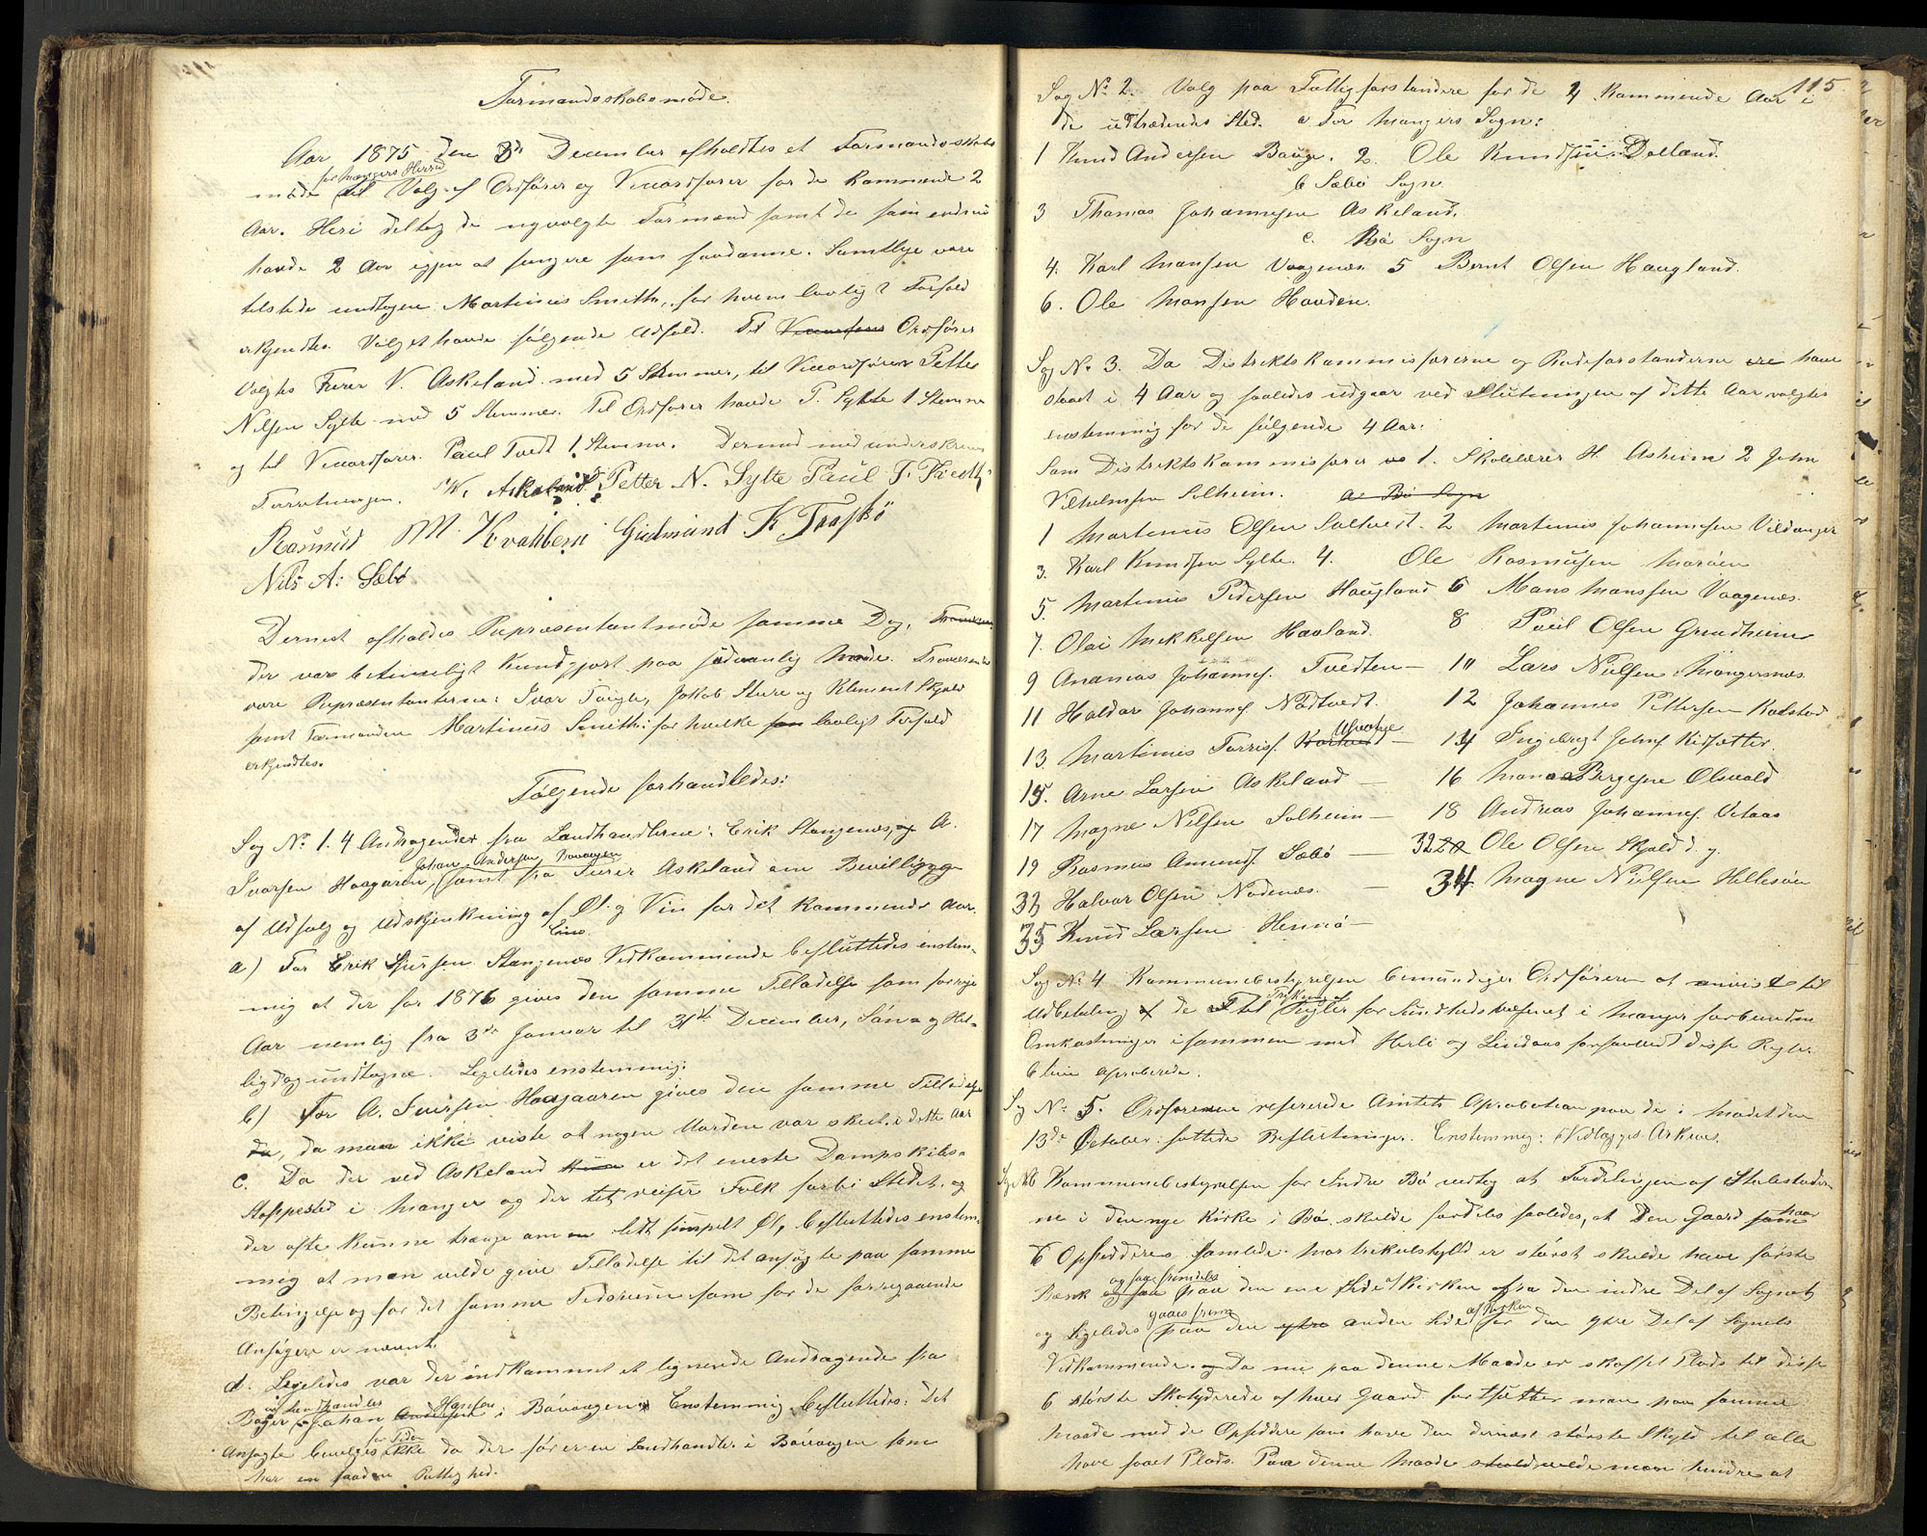 Formandskabsmøde.
Aar 1875 den 3de December afholdtes et Formandsskabs
for Mangers Herred
møde til Valg af Ordfører og Viceordfører for de kommende 2
Aar. Heri deltog de nyvalgte Formænd samt de som endnu
havde 2 Aar igjen at fungere som saadanne. Samtlige vare
tilstede undtagen Martinus Smith, for hvem lovligt Forfald
erkjendtes. Valget havde følgende Udfald. Til Viceordfører Ordfører
valgtes Furer V. Askeland med 5 Stemmer, til Viceordfører Petter
Nilsen Sylte med 5 Stemmer. Til Ordfører havde P. Sylte 1 Stemme
og til Viceordfører Paul Tvedt 1 Stemme. Dermed
Forretningen. W. Askeland Petter N. Sylte Paul
Rasmus M. Kvahlheim Gudmund K
Nils A: Sæbø
Dernest afholdes Repræsentantmøde samme Dag,
der var betimeligt kundgjort paa sædvanlig Maade. Fraværende
vare Repræsentanterne: Ivar Toigle, Jakob Sture og Klement Skjold
samt Formanden Martinus Smith: for hvilke lovligt Forfald
erkjendtes.
Følgende forhandledes:
Sag No 1. 4 Andragender fra Landhandlerne: Erik Stangenæs, og A.
Johan Andersen Bøvaagen
Ivarsen Haagaren, samt fra Furer Askeland om Bevilligyge
af Udsalg og Udskjenkning af Øl og Vin for det kommende Aar.
a) For Erik Stangenæs Vedkommende besluttedes enstem-
mig at der for 1876 gives den samme Tilladelse som forrige
Aar nemlig fra 3de Januar til 31te December, Søn- og Hel-
ligdag undtagne. Ligeledes enstemmig:
b) For A. Iversen Haagaaren gives den samme Tilladelse
da, da man ikke viste at nogen Uorden var skeet i dette Aar
c. Da der ved Askeland er det eneste Dampskibs-
stoppested i Manger og der tet reiser Folk forbi Stedet, og
der ofte kunne trænge om en lidt simpelt Øl, besluttedes enstem-
mig at man vilde give Tilladelse til det ansøgte paa samme
Betingelse og for det samme Tidsrum som for de foregaaende
Ansøgere er nævnt.
d. Ligeledes var der indkommet et lignende Andragende fra
Landhandler Hansen
Johan Andersen i Bøvaagen. Enstemmig besluttedes: Det
for Tiden
Ansøgte bevilges ikke da der før er en Landhandler i Bøvaagen som
har en saadan Rettighed.
115
Sag No 2. Valg paa Fattigforstandere for de 4 kommende Aar i
de udtrædendes Sted. a For Mangers Sogn:
1 Knud Andersen Bauge. 2. Ole Knudsen Dalland.
b Sæbø Sogn
3 Thomas Johannesen Askeland.
c. Bø Sogn
4. Karl Monsen Vaagenæs 5 Bernt Olsen Haugland.
6. Ole Monsen Havden.
Sag No 3. Da Distriktskommissærerne og Rodeforstanderne ere have
staaet i 4 Aar og saaledes udgaar ved Slutningen af dette Aar valgtes
enstemmig for de følgende 4 Aar:
Som Distriktskommissærer 1. Skolelærer H Asheim 2 John
Vilhelmsen Solheim. a. Bø Sogn
1 Martinus Olsen Saltvedt. 2 Martinus Johannesen Vildanger
3. Karl Knudsen Sylte. 4. Ole Rasmusen Marøen
5. Martinus Pedersen Haugland 6 Mons Monssen Vaagenæs.
7. Olai Mikkelsen Havland. 8 Paul Olsen Grudheim
9 Ananias Johannes. Tvedten — 10 Lars Nielsen Mangersnæs
11 Haldor Johannes. Nødtvedt. 12 Johannes Pettersen Kolstad
13. Martinus Torris. — 14 Ingebrigt Johns Risetter.
15. Arne Larsen Askeland — 16 Mons Børgesen Olsvold
17 Magne Nilsen Solheim — 18 Andreas Johannes. Vetaas
19 Rasmus Amunds. Sæbø — 32 Ole Olsen Skjold d. y.
33 Halvor Olsen Nødenæs. — 34 Magne Nielsen Hellesøen
35 Knud Larsen Hennø —
Sag No 4 Kommunebestyrelsen bemyndiger Ordføreren at anvise til
Udbetaling de til Trykning af Regler for Sundhedsvæsenet i Manger forbundne
Omkostninger isammen med Herlø og Lindaas forsaavidt disse Regler
blive aproberede.
Sag No 5. Ordføreren refererede Amtets Aprobation paa de i Mødet den
13de October fattede Beslutninger. Enstemmig: Vedlægges Arkivet.
Sag No 6 Kommunebestyrelsen for Indre Bø vedtog at Fordelingen af Stolestader-
ne i den nye Kirke i Bø skulde fordeles saaledes, at Den Gaard som har
6 Opsidderes samlede Matrikulskyld er størst skulde have første
og saa fremdeles
Bænk og saa paa den ene Side af Kirken fra den indre Del af Sognet
gaaes frem af Kirken
og Ligeledes paa den ytre anden Side for den ytre Del af Sognets
Vedkommende. og Da nu paa denne Maade er skaffet Plads til disse
6 største Skatydende af hver Gaard fortsætter man paa samme
Maade med de Opsiddere som have den dernæst største Skyld til alle
have faaet Plads. Paa denne Maade skuld vilde man hindre at